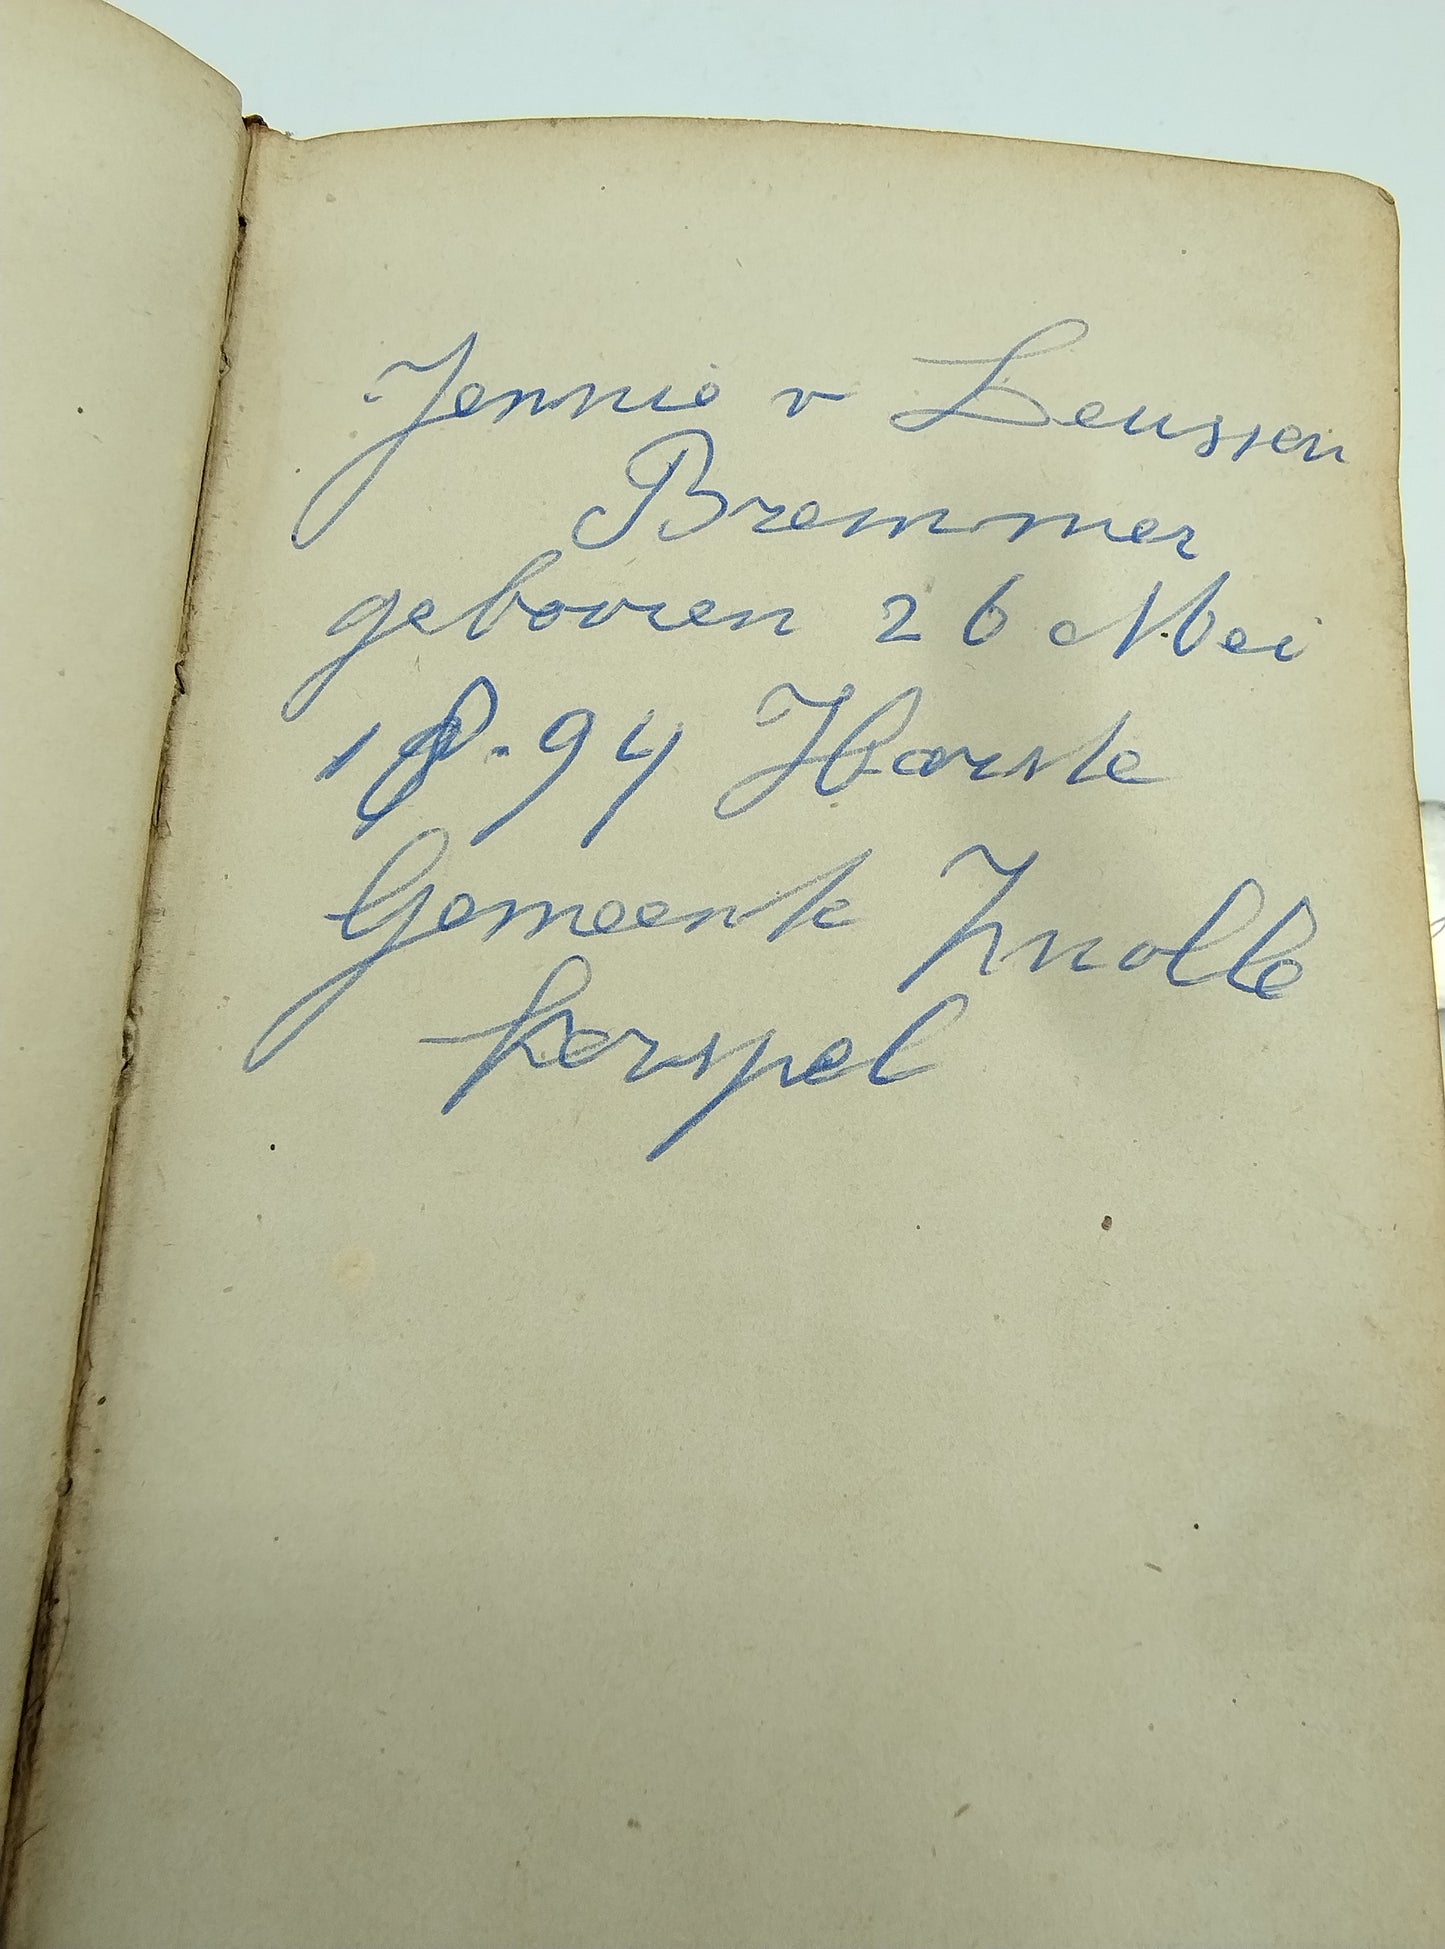 Jennie v Leussen
Bremmer
gebooren 26 Mei
18-94 Harste
Gemeente Zwolle
kerspel